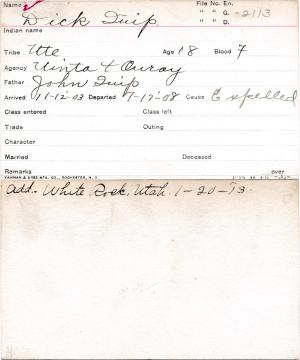 Name Dick Quip File No. En.
" " G. -2113
" " D.
Indian name
Tribe Ute Age 18 Blood 7
Agency Uinta & Ouray
Father John Quip
Arrived 11-12-03 Departed 7-17-08 Cause Expelled
Class entered Class left
Trade Outing
Character
Married Deceased
Remarks over
YAWMAN & ERBE MFG. CO., ROCHESTER, N. Y.
Add. White Rock, Utah. 1-20-13.